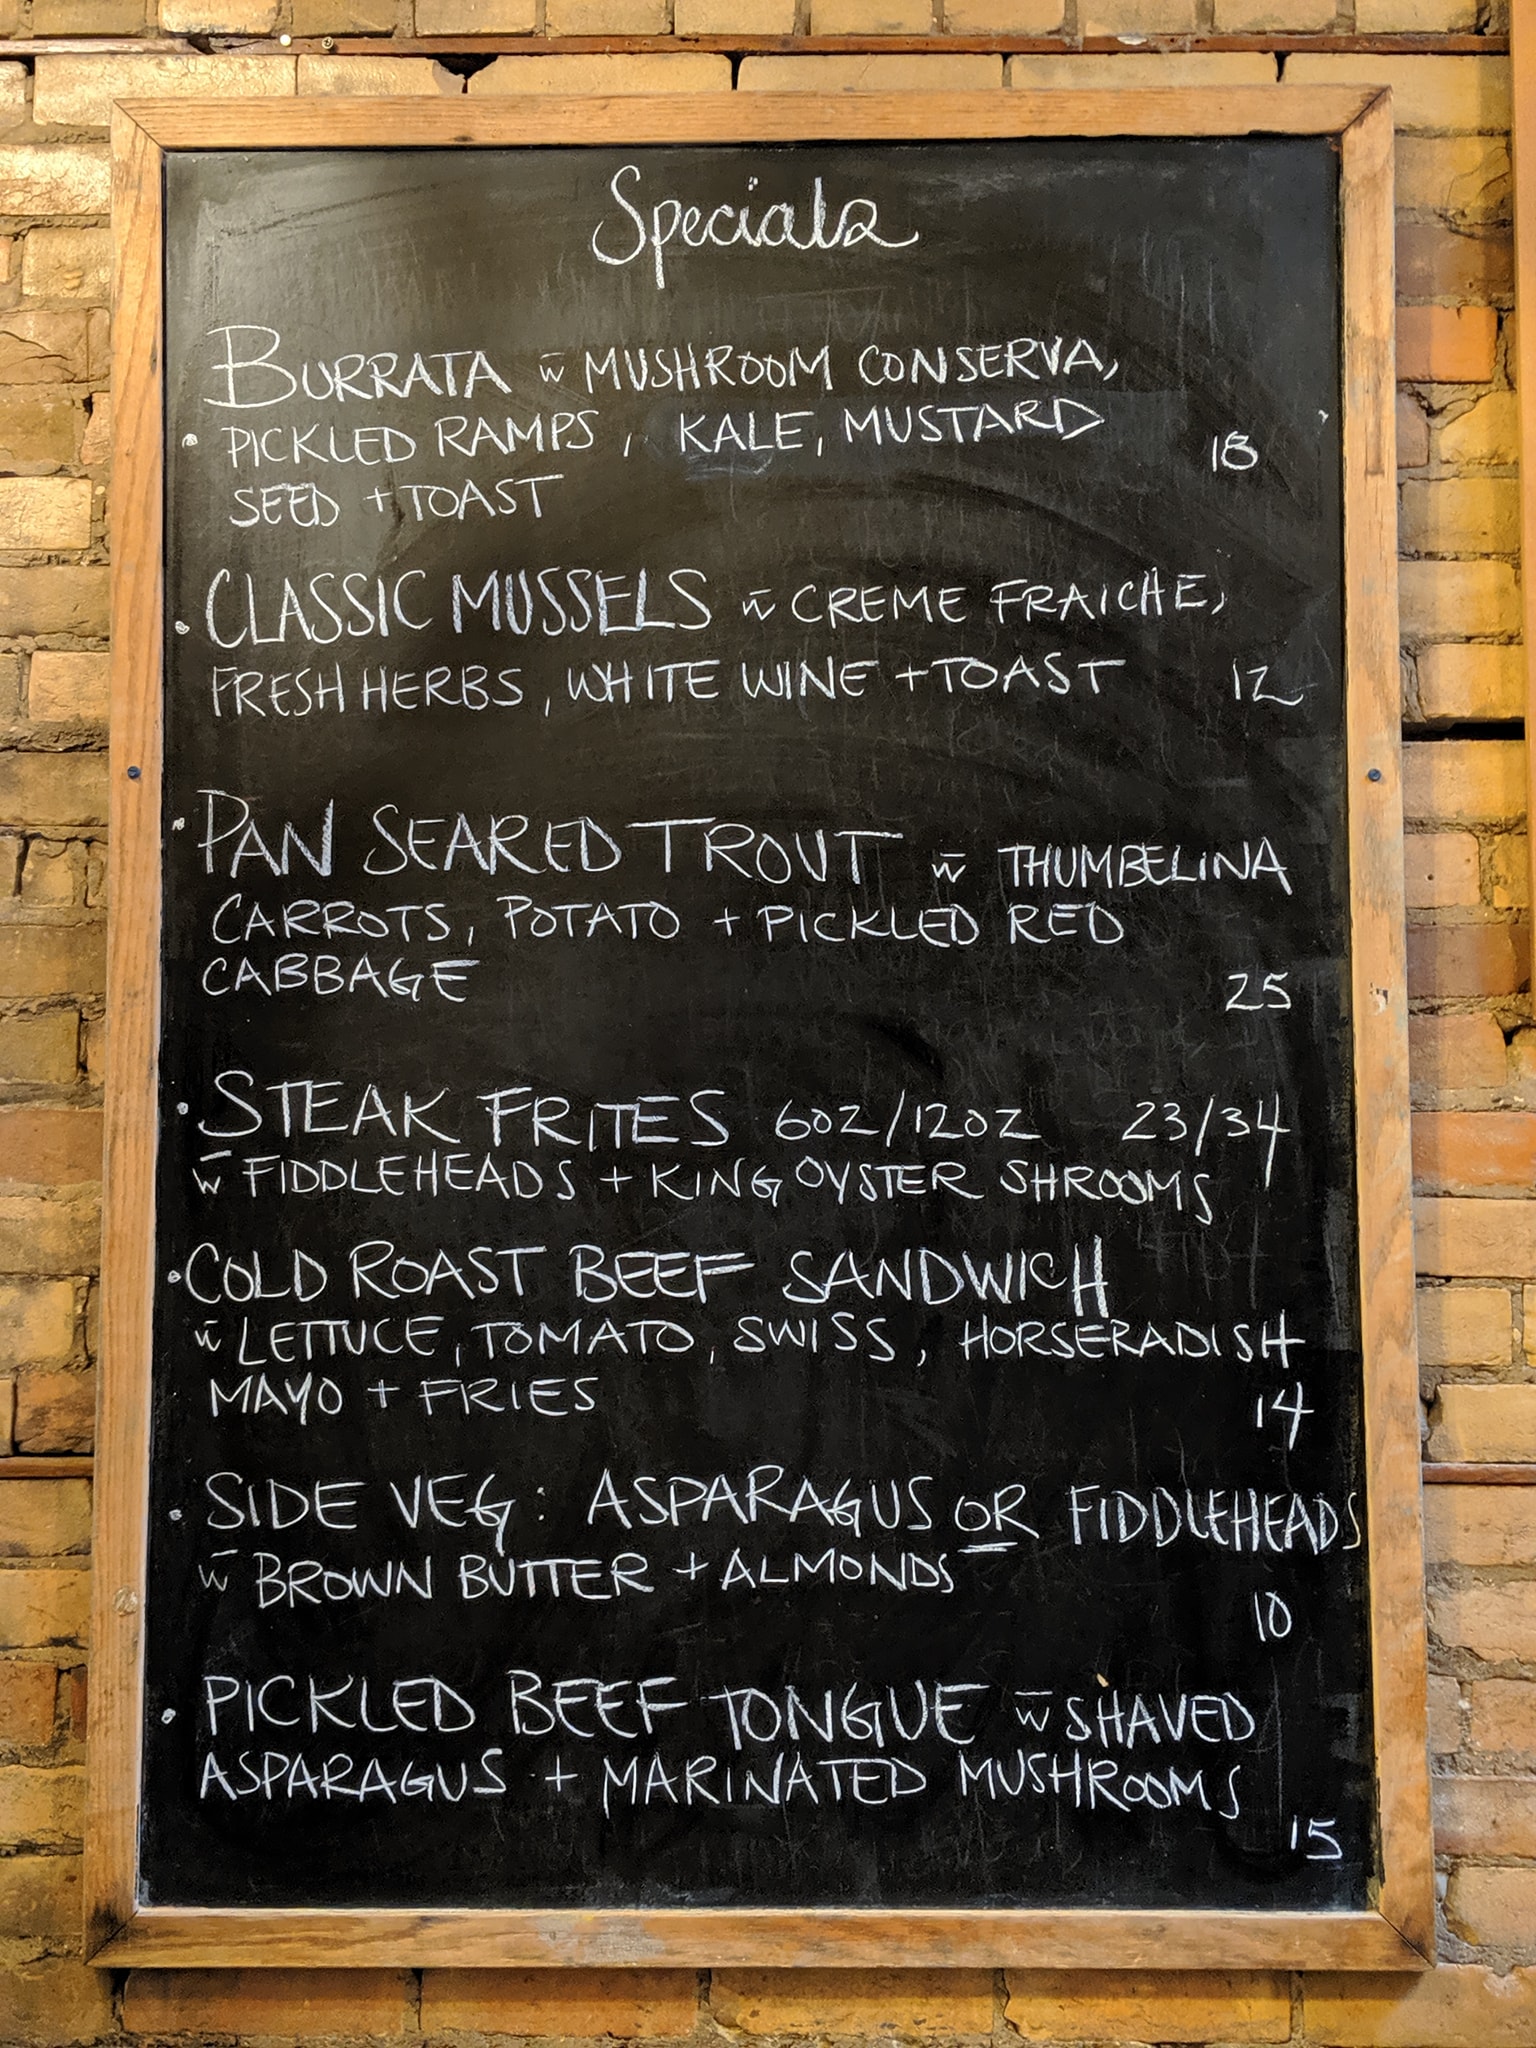 Specials
BURRATA w̄ MUSHROOM CONSERVA,
• PICKLED RAMPS, KALE, MUSTARD 18
SEED + TOAST
• CLASSIC MUSSELS w̄ CREME FRAICHE,
FRESH HERBS, WHITE WINE + TOAST 12
• PAN SEARED TROUT w̄ THUMBELINA
CARROTS, POTATO + PICKLED RED
CABBAGE 25
• STEAK FRITES 6OZ/12OZ 23/34
w̄ FIDDLEHEADS + KING OYSTER SHROOMS
• COLD ROAST BEEF SANDWICH
w̄ LETTUCE, TOMATO, SWISS, HORSERADISH
MAYO + FRIES 14
• SIDE VEG: ASPARAGUS OR FIDDLEHEADS
w̄ BROWN BUTTER + ALMONDS
10
• PICKLED BEEF TONGUE w̄ SHAVED
ASPARAGUS + MARINATED MUSHROOMS
15